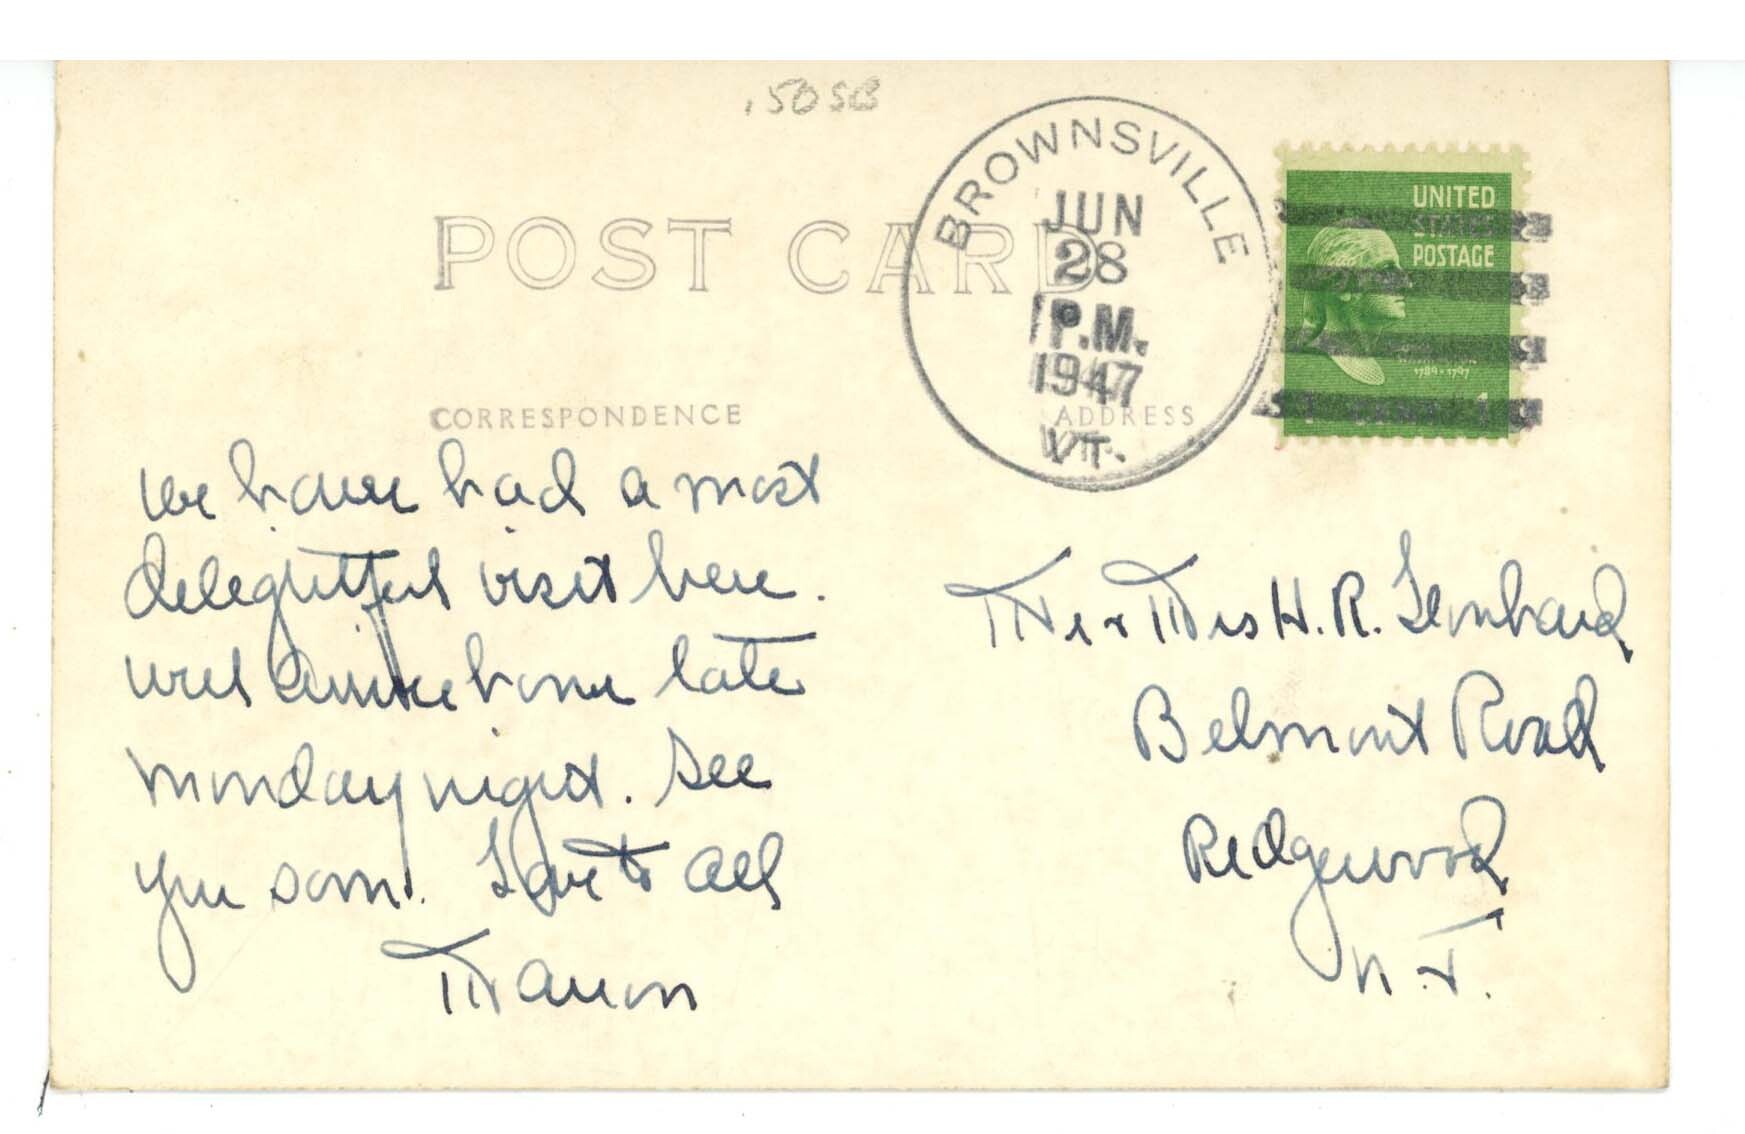 .50 SB
POST CARD
BROWNSVILLE
JUN
28
P.M.
1947
VT.
UNITED
STATES
POSTAGE
1789-1797
1
CORRESPONDENCE
ADDRESS
We have had a most
delightful visit here.
Will arrive home late
Monday night. See
you soon. Love to all
Marion
Mr & Mrs H. R. Lombard
Belmont Road
Ridgewood
N. J.